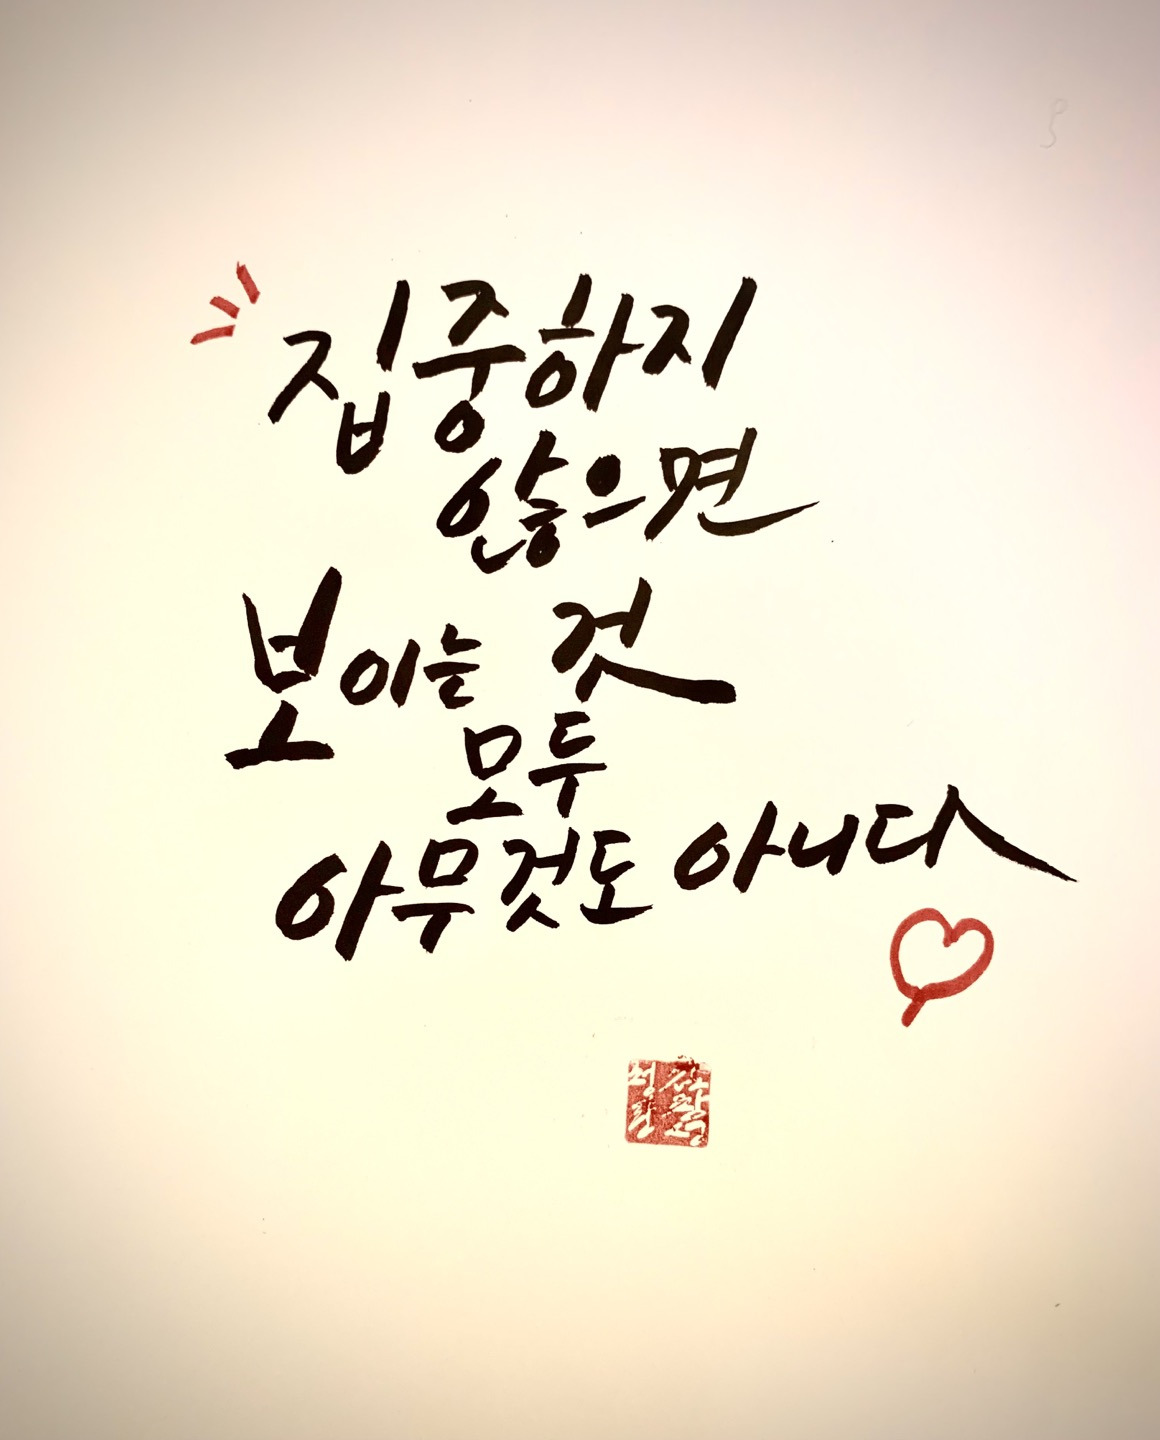 집중하지
않으면
보이는 것
모두
아무것도 아니다